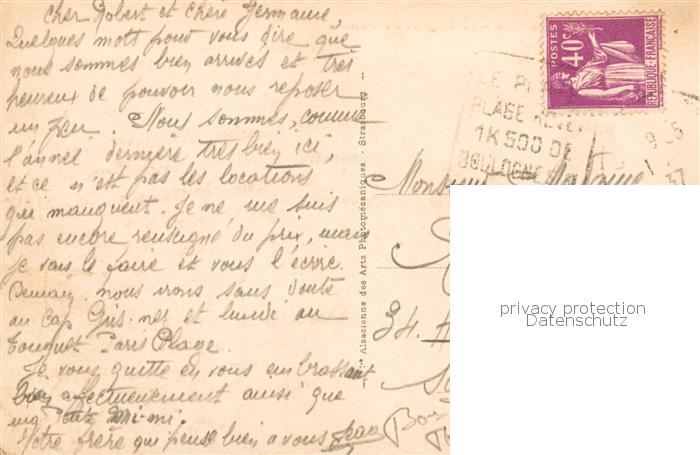 Cher Robert et Chère Germaine,
Quelques mots pour vous dire que
nous sommes bien arrivés et très
heureux de pouvoir nous reposer
un peu. Nous sommes, comme
l'année dernière très bien ici,
et ce n'est pas les locations
qui manquent. Je ne me suis
pas encore renseigné du prix, mais
je vais le faire et vous l'écrire.
Demain nous irons sans doute
au Cap Gris-nez et lundi au
Touquet Paris Plage.
Je vous quitte en vous embrassant
bien affectueusement ainsi que
petite Mi-mi.
Votre frère qui pense bien à vous Jean
Alsacienne des Arts Photomécaniques - Strasbourg
POSTES
40c
REPUBLIQUE-FRANÇAISE
LE P
PLAGE
1K500 DE
BOULOGNE
9-5
37
Monsieur
34.
privacy protection
Datenschutz